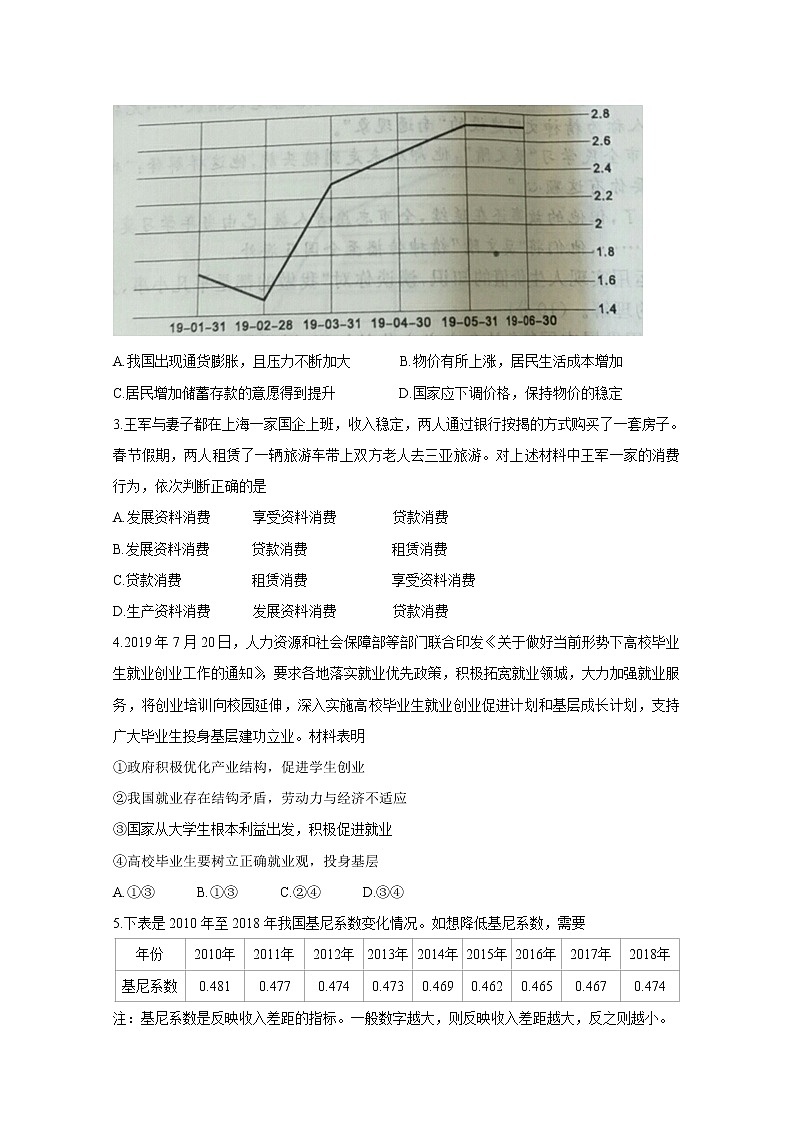 2.8
2.6
2.4
2.2
2
1.8
1.6
1.4
19-01-31 19-02-28 19-03-31 19-04-30 19-05-31 19-06-30
A.我国出现通货膨胀，且压力不断加大 B.物价有所上涨，居民生活成本增加
C.居民增加储蓄存款的意愿得到提升 D.国家应下调价格，保持物价的稳定
3.王军与妻子都在上海一家国企上班，收入稳定，两人通过银行按揭的方式购买了一套房子。
春节假期，两人租赁了一辆旅游车带上双方老人去三亚旅游。对上述材料中王军一家的消费
行为，依次判断正确的是
A.发展资料消费 享受资料消费 贷款消费
B.发展资料消费 贷款消费 租赁消费
C.贷款消费 租赁消费 享受资料消费
D.生产资料消费 发展资料消费 贷款消费
4.2019年7月20日，人力资源和社会保障部等部门联合印发《关于做好当前形势下高校毕业
生就业创业工作的通知》，要求各地落实就业优先政策，积极拓宽就业领城，大力加强就业服
务，将创业培训向校园延伸，深入实施高校毕业生就业创业促进计划和基层成长计划，支持
广大毕业生投身基层建功立业。材料表明
①政府积极优化产业结构，促进学生创业
②我国就业存在结钩矛盾，劳动力与经济不适应
③国家从大学生根本利益出发，积极促进就业
④高校毕业生要树立正确就业观，投身基层
A.①③ B.①③ C.②④ D.③④
5.下表是2010年至2018年我国基尼系数变化情况。如想降低基尼系数，需要
年份 2010年 2011年 2012年 2013年 2014年 2015年 2016年 2017年 2018年
基尼系数 0.481 0.477 0.474 0.473 0.469 0.462 0.465 0.467 0.474
注：基尼系数是反映收入差距的指标。一般数字越大，则反映收入差距越大，反之则越小。